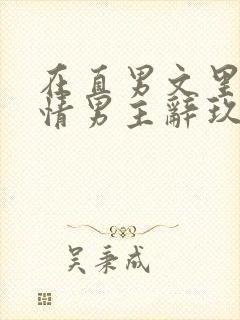 在直男文里
情男主辞玖
吴秉成